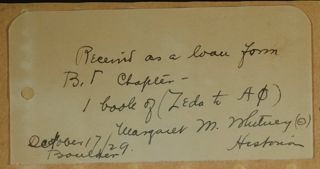 Received as a loan form
B.Γ Chapter -
1 book of (Zeda to AΦ)
Margaret M. Whitney (c)
October 17/29. Historian
Boulder